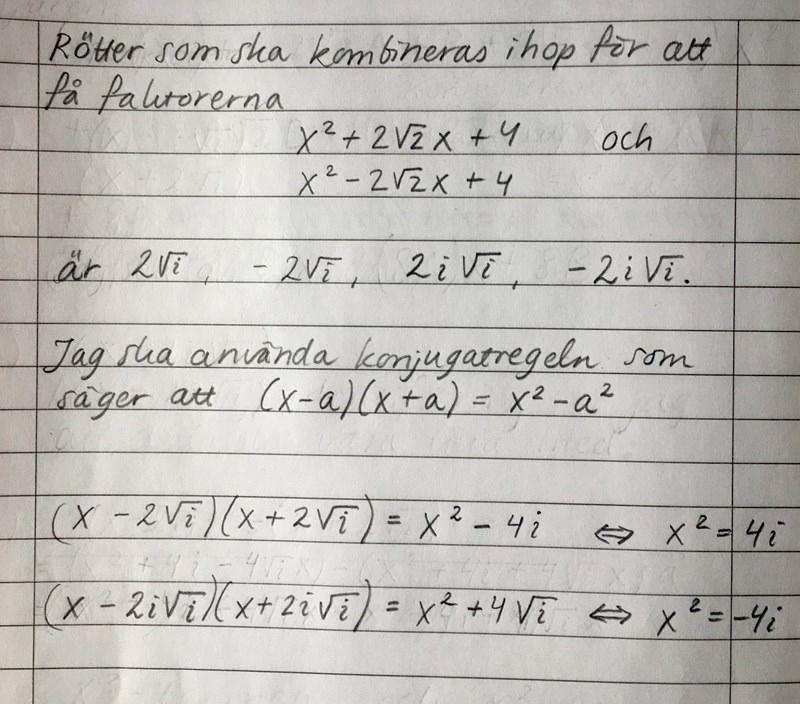 Rötter som ska kombineras ihop för att
få faktorerna
x² + 2√2 x + 4 och
x² - 2√2 x + 4
är 2√i, - 2√i, 2i√i, -2i√i.
Jag ska använda konjugatregeln som
säger att (x-a)(x+a) = x² - a²
(x - 2√i)(x + 2√i) = x² - 4i ⇔ x² = 4i
(x - 2i√i)(x + 2i√i) = x² + 4√i ⇔ x² = -4i